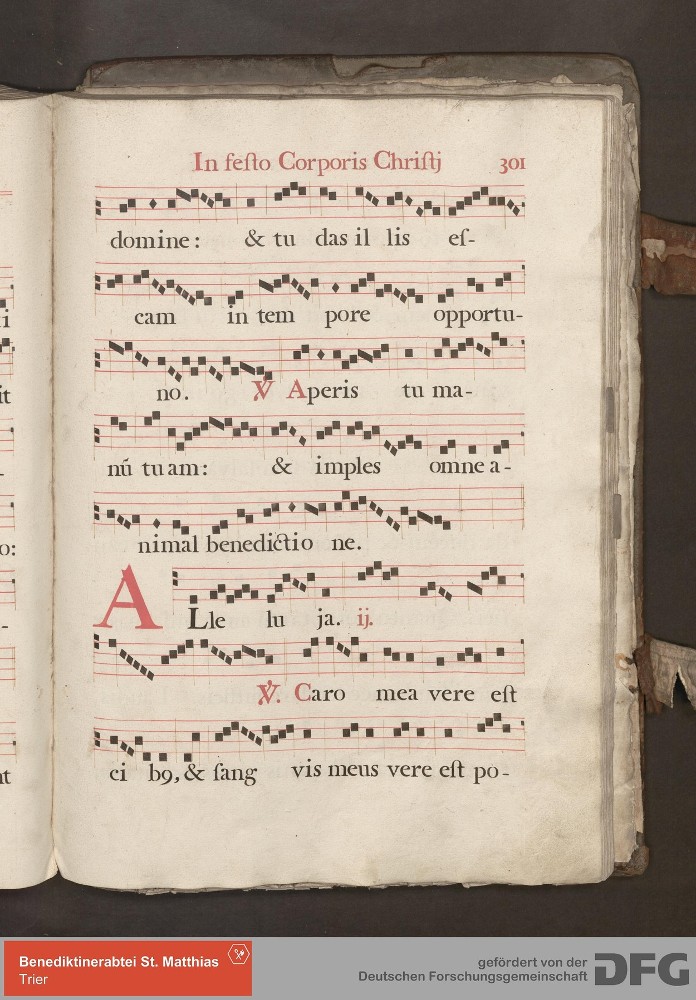 In feſto Corporis Chriſtj 301
domine: & tu das il lis eſ-
cam in tem pore opportu-
no. ℣ Aperis tu ma-
nū tu am: & imples omne a-
nimal benedictio ne.
ALle lu ja. ij.
℣. Caro mea vere eſt
ci b9, & ſang vis meus vere eſt po-
i
it
-
o:
-
nt
Benediktinerabtei St. Matthias
Trier
gefördert von der
Deutschen Forschungsgemeinschaft
DFG